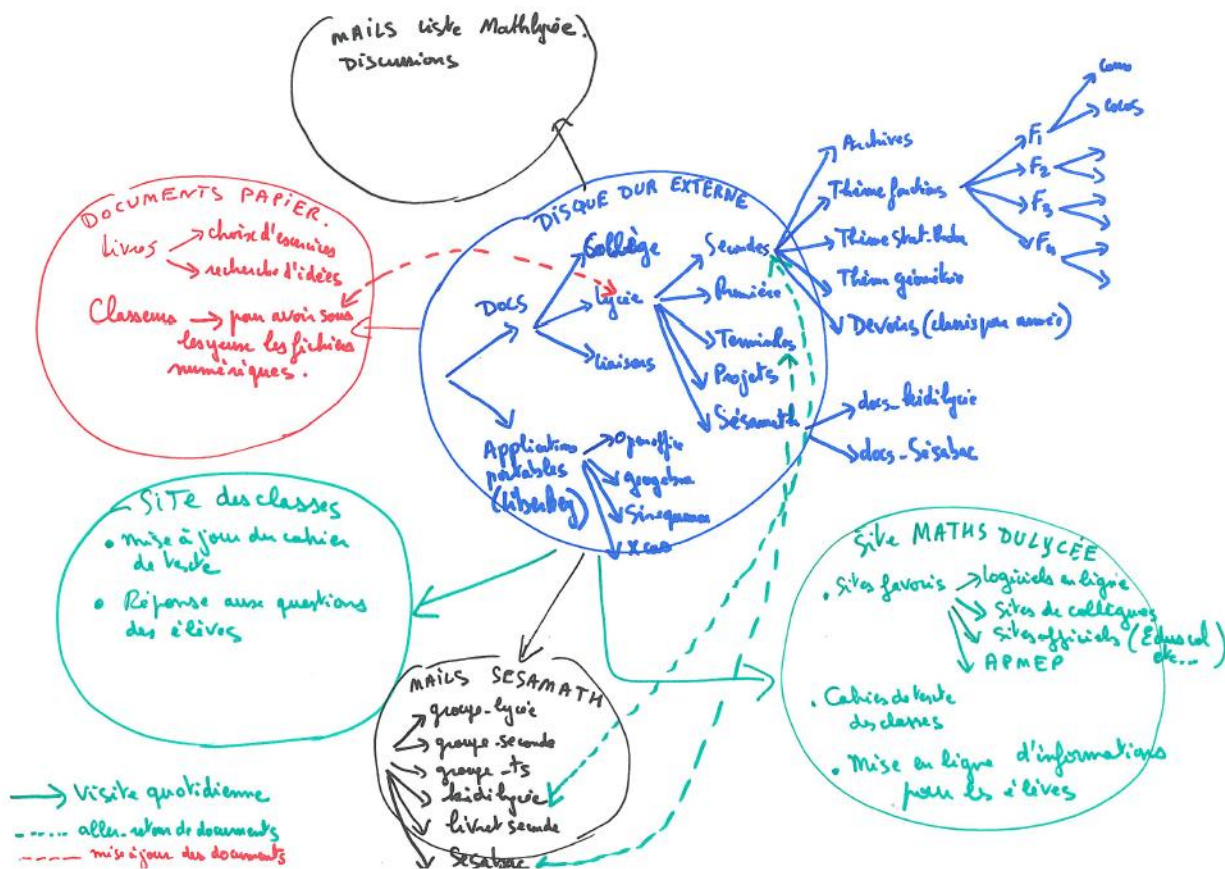 MAILS liste Mathlycée.
Discussions
DOCUMENTS PAPIER.
Livres
choix d'exercices
recherche d'idées
Classeurs → pour avoir sous
les yeux les fichiers
numériques.
DISQUE DUR EXTERNE
DOCS
Collège
Lycée
liaisons
Secondes
Première
Terminales
Projets
Sésamath
Archives
Thème fonctions
Thème stat-Proba
Thème géométrie
Devoirs (classés par année)
F1
F2
F3
F4
cours
docs_kidilycée
docs_Sésabac
Applications
portables
(Liberkey)
Openoffice
geogebra
Sinequanon
Xcas
SITE des classes
• mise à jour du cahier
de texte
• Réponse aux questions
des élèves
MAILS SESAMATH
groupe-lycée
groupe-seconde
groupe-ts
kidilycée
livret seconde
Sesabac
Site MATHS DU LYCÉE
• Sites favoris
logiciels en ligne
Sites de collègues
Sites officiels (Eduscol
etc...)
APMEP
• Cahiers de texte
des classes
• Mise en ligne d'informations
pour les élèves
→ Visite quotidienne
aller-retour de documents
mise à jour des documents